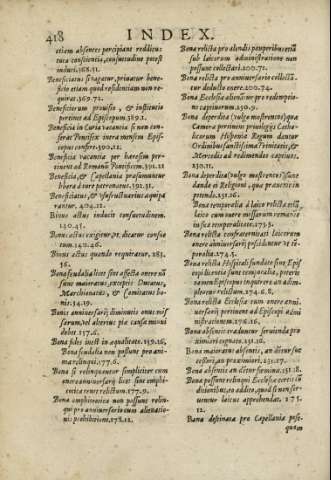 418 INDEX.
etiam absentes percipiant redditus
tuta conscientia, consuetudine potest
induci. 368.51.
Beneficiarius si vagatur, privatur bene-
ficio etiam quod residentiam non re-
quirat. 369.72.
Beneficiorum provisio, & institutio
pertinet ad Episcopum. 389.1.
Beneficia in Curia vacantia si non con-
ferat Pontifex intra mensem Epis-
copus confert. 390.11.
Beneficia vacantia per haeresim per-
tinent ad Romanū Pontificem. 391.11
Beneficia, & Capellania praesumuntur
libera à iure patronatus. 392.31.
Beneficiatus, & usufructuarius aequipa
rantur. 404.12.
Binus actus inducit consuetudinem.
130.45.
Binus actus exigitur, vt dicatur consue
tum. 140.46.
Binus actus quando requiratur. 285.
36.
Bona feudalia licet sint affecta onere nō
sunt maioratus, exceptis Ducatus,
Marchionatus, & Comitatus bo-
nis. 34.19.
Bonis anniversarij diminutis onus mis
sarum, vel alterius pia causa minui
debet. 137.6.
Bona fides inest in aqualitate. 159.16.
Bona feudelia non possunt pro ani-
ma relinqui. 177.6.
Bona si relinquuntur simpliciter cum
onere anniversarij licet sine empli-
teotica reuté relictum. 177.9.
Bona emphiteotica non possunt relin-
qui pro anniversario cum alienatio-
nis prohibitum. 178.12.
Bona relicta pro alendis pauperibus etiā
sub laicorum administratione non
possunt collectari. 200.71.
Bona relicta pro anniversario collectā
tur deducto onere. 200.74.
Bona Ecclesia alienātur pro redemptio-
ne captivorum. 230.9.
Bona deperdita (vulgo mostrencos) qua
Camera pertinent privilegijs Catho-
licorum Hispania Regum dantur
Ordinibus sanctissima Trinitatis, &
Mercedis ad redimendos captivos.
230.11.
Bona deperdita (vulgo mostrencos) sunt
danda et Religioni, qua praevenit in
petendo. 231.16.
Bona temporalia à laico relicta etiā
laico cum onere missarum remaneo
in sua temporalitate. 173.3.
Bona relicta confraternitati laicorum
onere anniversarij possidentur vt tē
poralia. 174.5.
Bona relicta Hospitali fundato sine Epis
copi licentia sunt temporalia, praeter-
eam Episcopus impartietur an adim-
plectur relictum. 174.6.8.
Bona relicta Ecclesia cum onere anni-
versarij pertinent ad Episcopi admi
nistrationem. 176.16.
Bona absentis traduntur fruenda pro
ximiori cognato. 251.10.
Bona maioratus absentis, an dētur suc
cessori, an proximiori. 251.17.
Bona absentis an dētur foemina. 251.18.
Bona possunt relinqui Ecclesia certis cō
ditionibus, eo addito, quod si non ser-
uentur laicus apprehendat. 275.
12.
Bona destinata pro Capellania posse-
quam